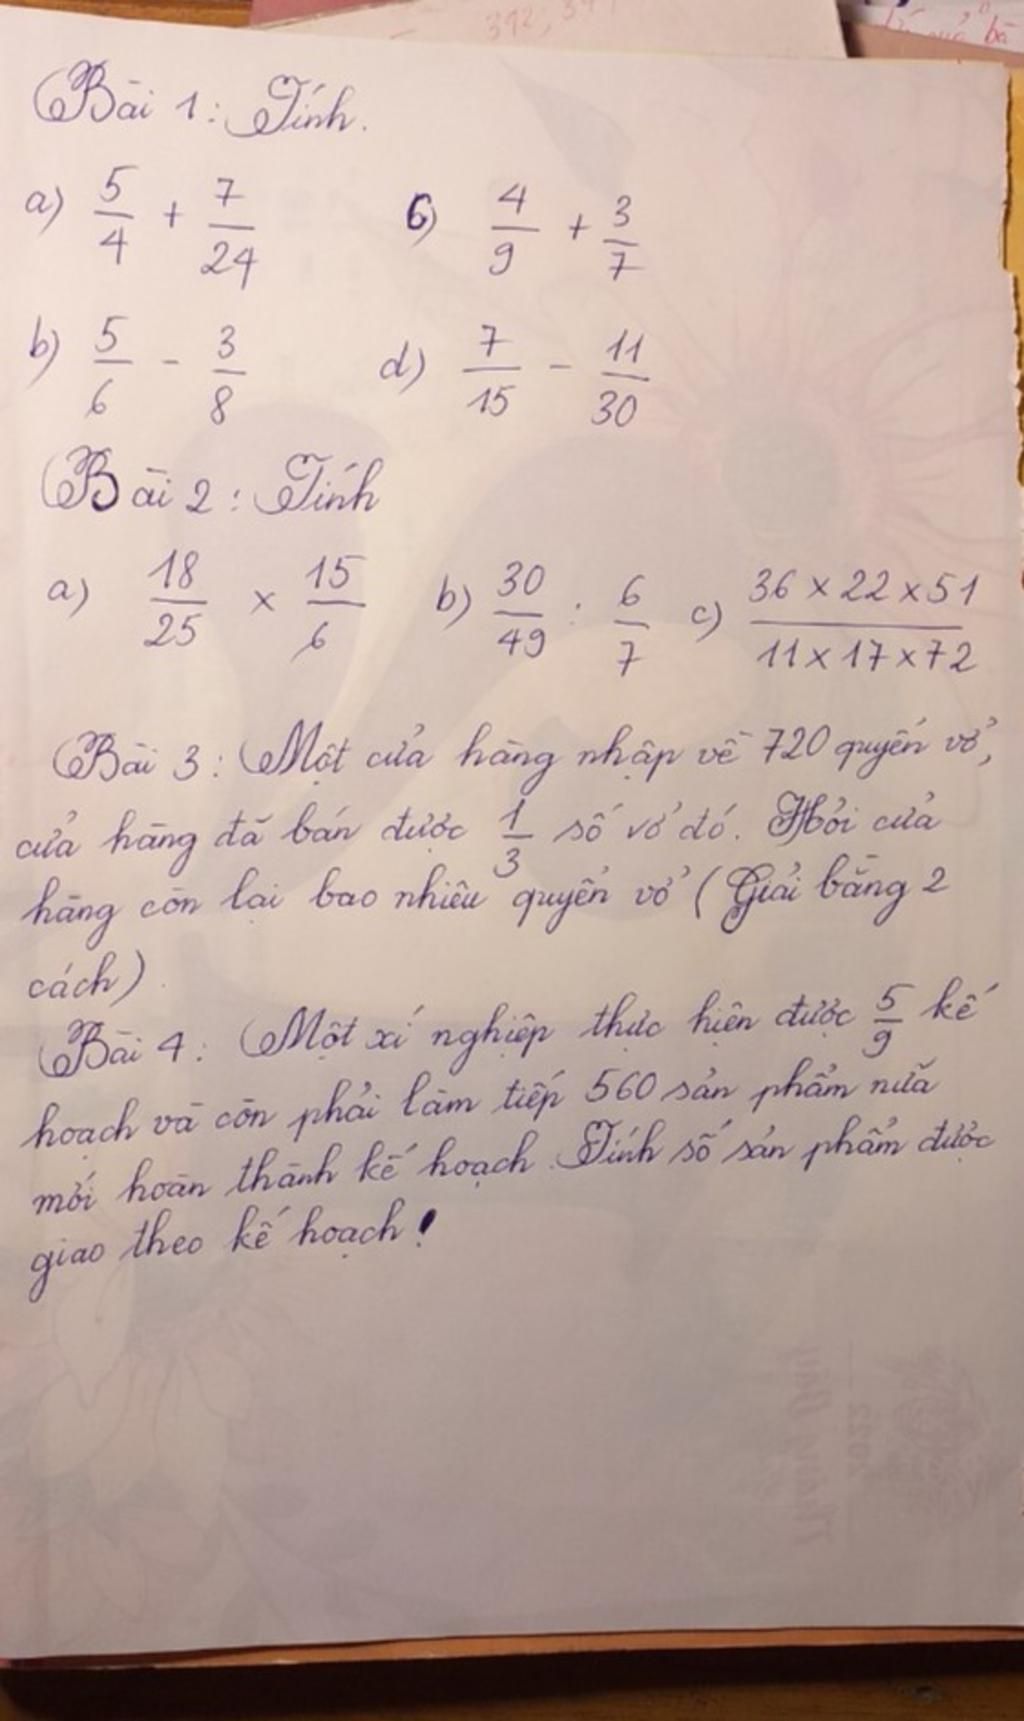 392; 39
Bài 1: Tính.
a) 5/4 + 7/24 6) 4/9 + 3/7
b) 5/6 - 3/8 d) 7/15 - 11/30
Bài 2: Tính
a) 18/25 × 15/6 b) 30/49 : 6/7 c) 36 × 22 × 51 / 11 × 17 × 72
Bài 3: Một cửa hàng nhập về 720 quyển vở,
cửa hàng đã bán được 1/3 số vở đó. Hỏi cửa
hàng còn lại bao nhiêu quyển vở (Giải bằng 2
cách).
Bài 4: Một xí nghiệp thực hiện được 5/9 kế
hoạch và còn phải làm tiếp 560 sản phẩm nữa
mới hoàn thành kế hoạch. Tính số sản phẩm được
giao theo kế hoạch!